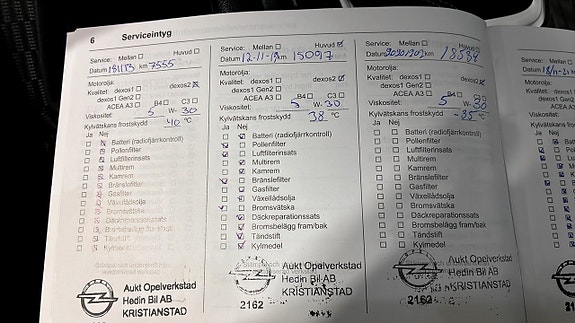 6 Serviceintyg
Service: Mellan Huvud
Datum 181113 km 7555
Motorolja:
Kvalitet: dexos1 dexos2
dexos1 Gen2
ACEA A3 B4 C3
Viskositet: 5 W- 30
Kylvätskans frostskydd
-40 °C
Ja Nej
Batteri (radiofjärrkontroll)
Pollenfilter
Luftfilterinsats
Multirem
Kamrem
Bränslefilter
Gasfilter
Växellådsolja
Bromsvätska
Däckreparationssats
Bromsbelägg fram/bak
Tändstift
Kylmedel
Aukt Opelverkstad
Hedin Bil AB
KRISTIANSTAD
Service: Mellan Huvud
Datum 12-11-19 km 15097
Motorolja:
Kvalitet: dexos1 dexos2
dexos1 Gen2
ACEA A3 B4 C3
Viskositet: 5 W- 30
Kylvätskans frostskydd
38 °C
Ja Nej
Batteri (radiofjärrkontroll)
Pollenfilter
Luftfilterinsats
Multirem
Kamrem
Bränslefilter
Gasfilter
Växellådsolja
Bromsvätska
Däckreparationssats
Bromsbelägg fram/bak
Tändstift
Kylmedel
Aukt Opelverkstad
Hedin Bil AB
KRISTIANSTAD
2162
Service: Mellan Huvud
Datum km 18584
Motorolja:
Kvalitet: dexos1 dexos2
dexos1 Gen2
ACEA A3 B4 C3
Viskositet: 5 W- 30
Kylvätskans frostskydd -35 °C
Ja Nej
Batteri (radiofjärrkontroll)
Pollenfilter
Luftfilterinsats
Multirem
Kamrem
Bränslefilter
Gasfilter
Växellådsolja
Bromsvätska
Däckreparationssats
Bromsbelägg fram/bak
Tändstift
Kylmedel
Aukt Opelverkstad
Hedin Bil AB
KRISTIANSTAD
2162
Service:
Datum
Motorolja:
Kvalitet:
Viskositet:
Kylvätskans
Ja Nej